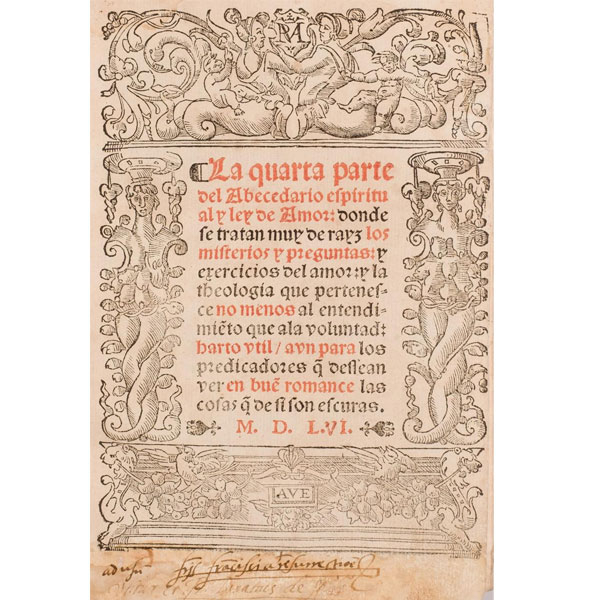 RM
La quarta parte
del Abecedario espiritu
al y ley de Amor: donde
se tratan muy de rayz los
misterios y preguntas: y
exercicios del amor: y la
theologia que pertenes-
ce no menos al entendi-
miẽto que ala voluntad:
harto vtil / avn para los
predicadores q̃ dessean
ver en buẽ romance las
cosas q̃ de si son escuras.
M. D. L.VI.
AVE